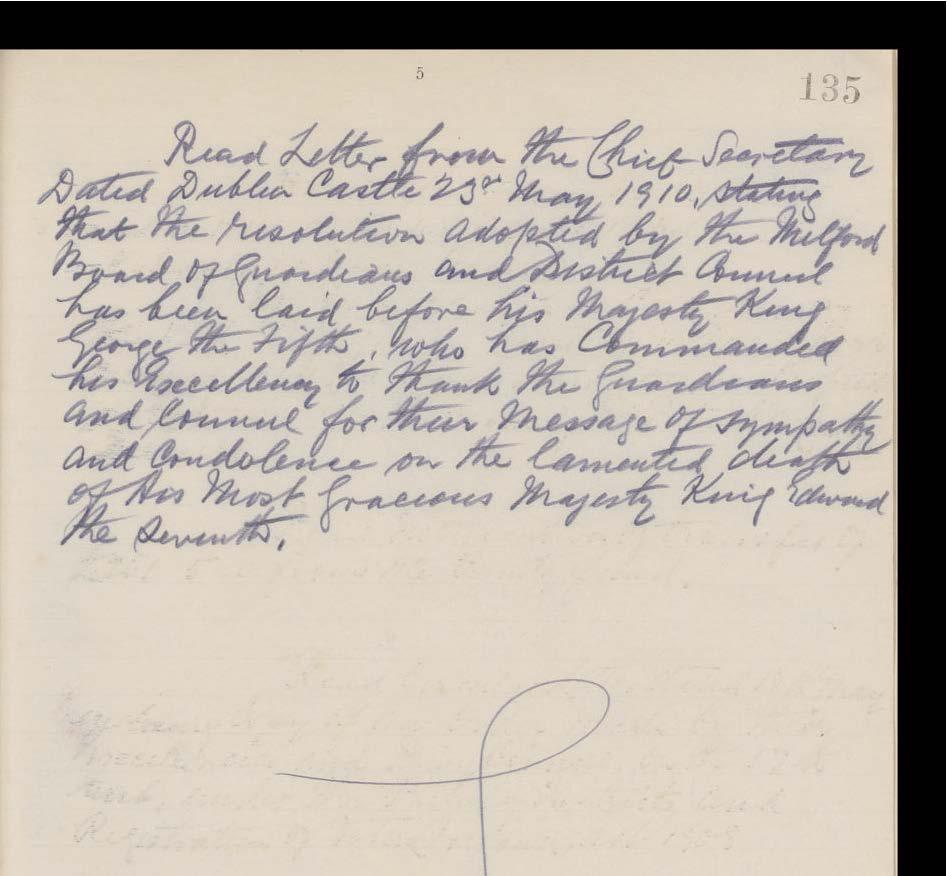 5
135
Read Letter from the Chief Secretary
Dated Dublin Castle 23rd May 1910, stating
that the resolution adopted by the Milford
Board of Guardians and District Council
has been laid before his Majesty King
George the Fifth, who has Commanded
his Excellency to thank the Guardians
and Council for their Message of sympathy
and Condolence on the lamented death
of His Most Gracious Majesty King Edward
the Seventh.